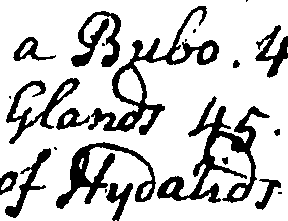 a Bubo. 4
Glands 45.
of Hydatids